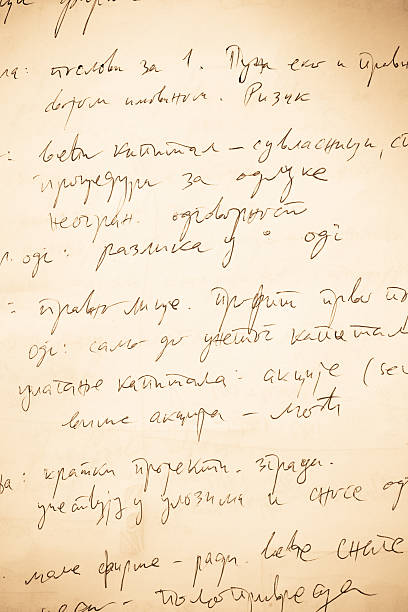 ла: послови за 1. Пуна еко и правн
својом имовином. Ризик
: већи капитал – сувласници, с
процедури за одлуке
неогран. одговорност
одг: разлика у одг
= правно лице. Профит прво п
одг: само до унетог капитала
улагање капитала: акције (se
више акција – моћ
ва: кратки пројекти. згради.
учествују у улозима и сносе од
мале фирме – ради. веће
– пољопривреда